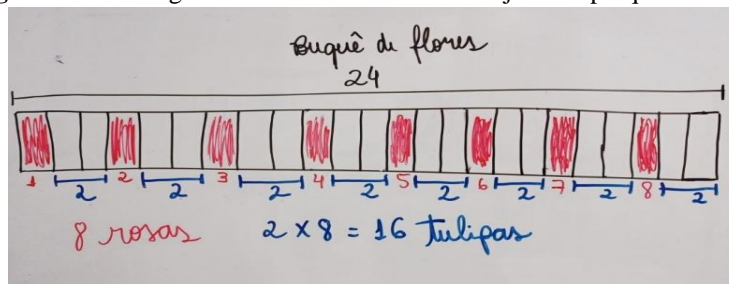 Buquê de flores
24
1 2 2 2 3 2 4 2 5 2 6 2 7 2 8 2
8 rosas 2 x 8 = 16 tulipas